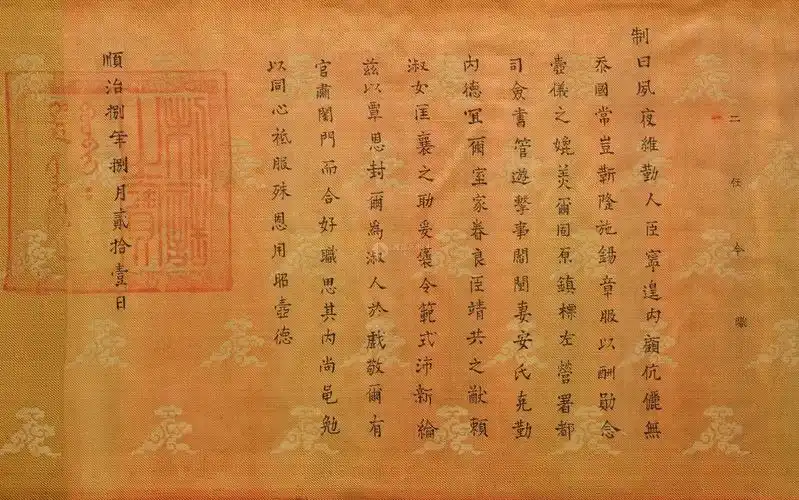 二任今職
制曰夙夜維勤人臣寧遑內顧伉儷無
忝國常豈靳隆施錫章服以酬勛念
壼儀之媲美爾固原鎮標左營署都
司僉書管遊擊事閻閨妻安氏克勤
內德宜爾室家眷良臣靖共之猷賴
淑女匡襄之助爰褒令範式沛新綸
茲以覃恩封爾為淑人於戲敬爾有
官肅閨門而合好職思其內尚黽勉
以同心祗服殊恩用昭壼德
順治捌年捌月貳拾壹日
制誥之寶